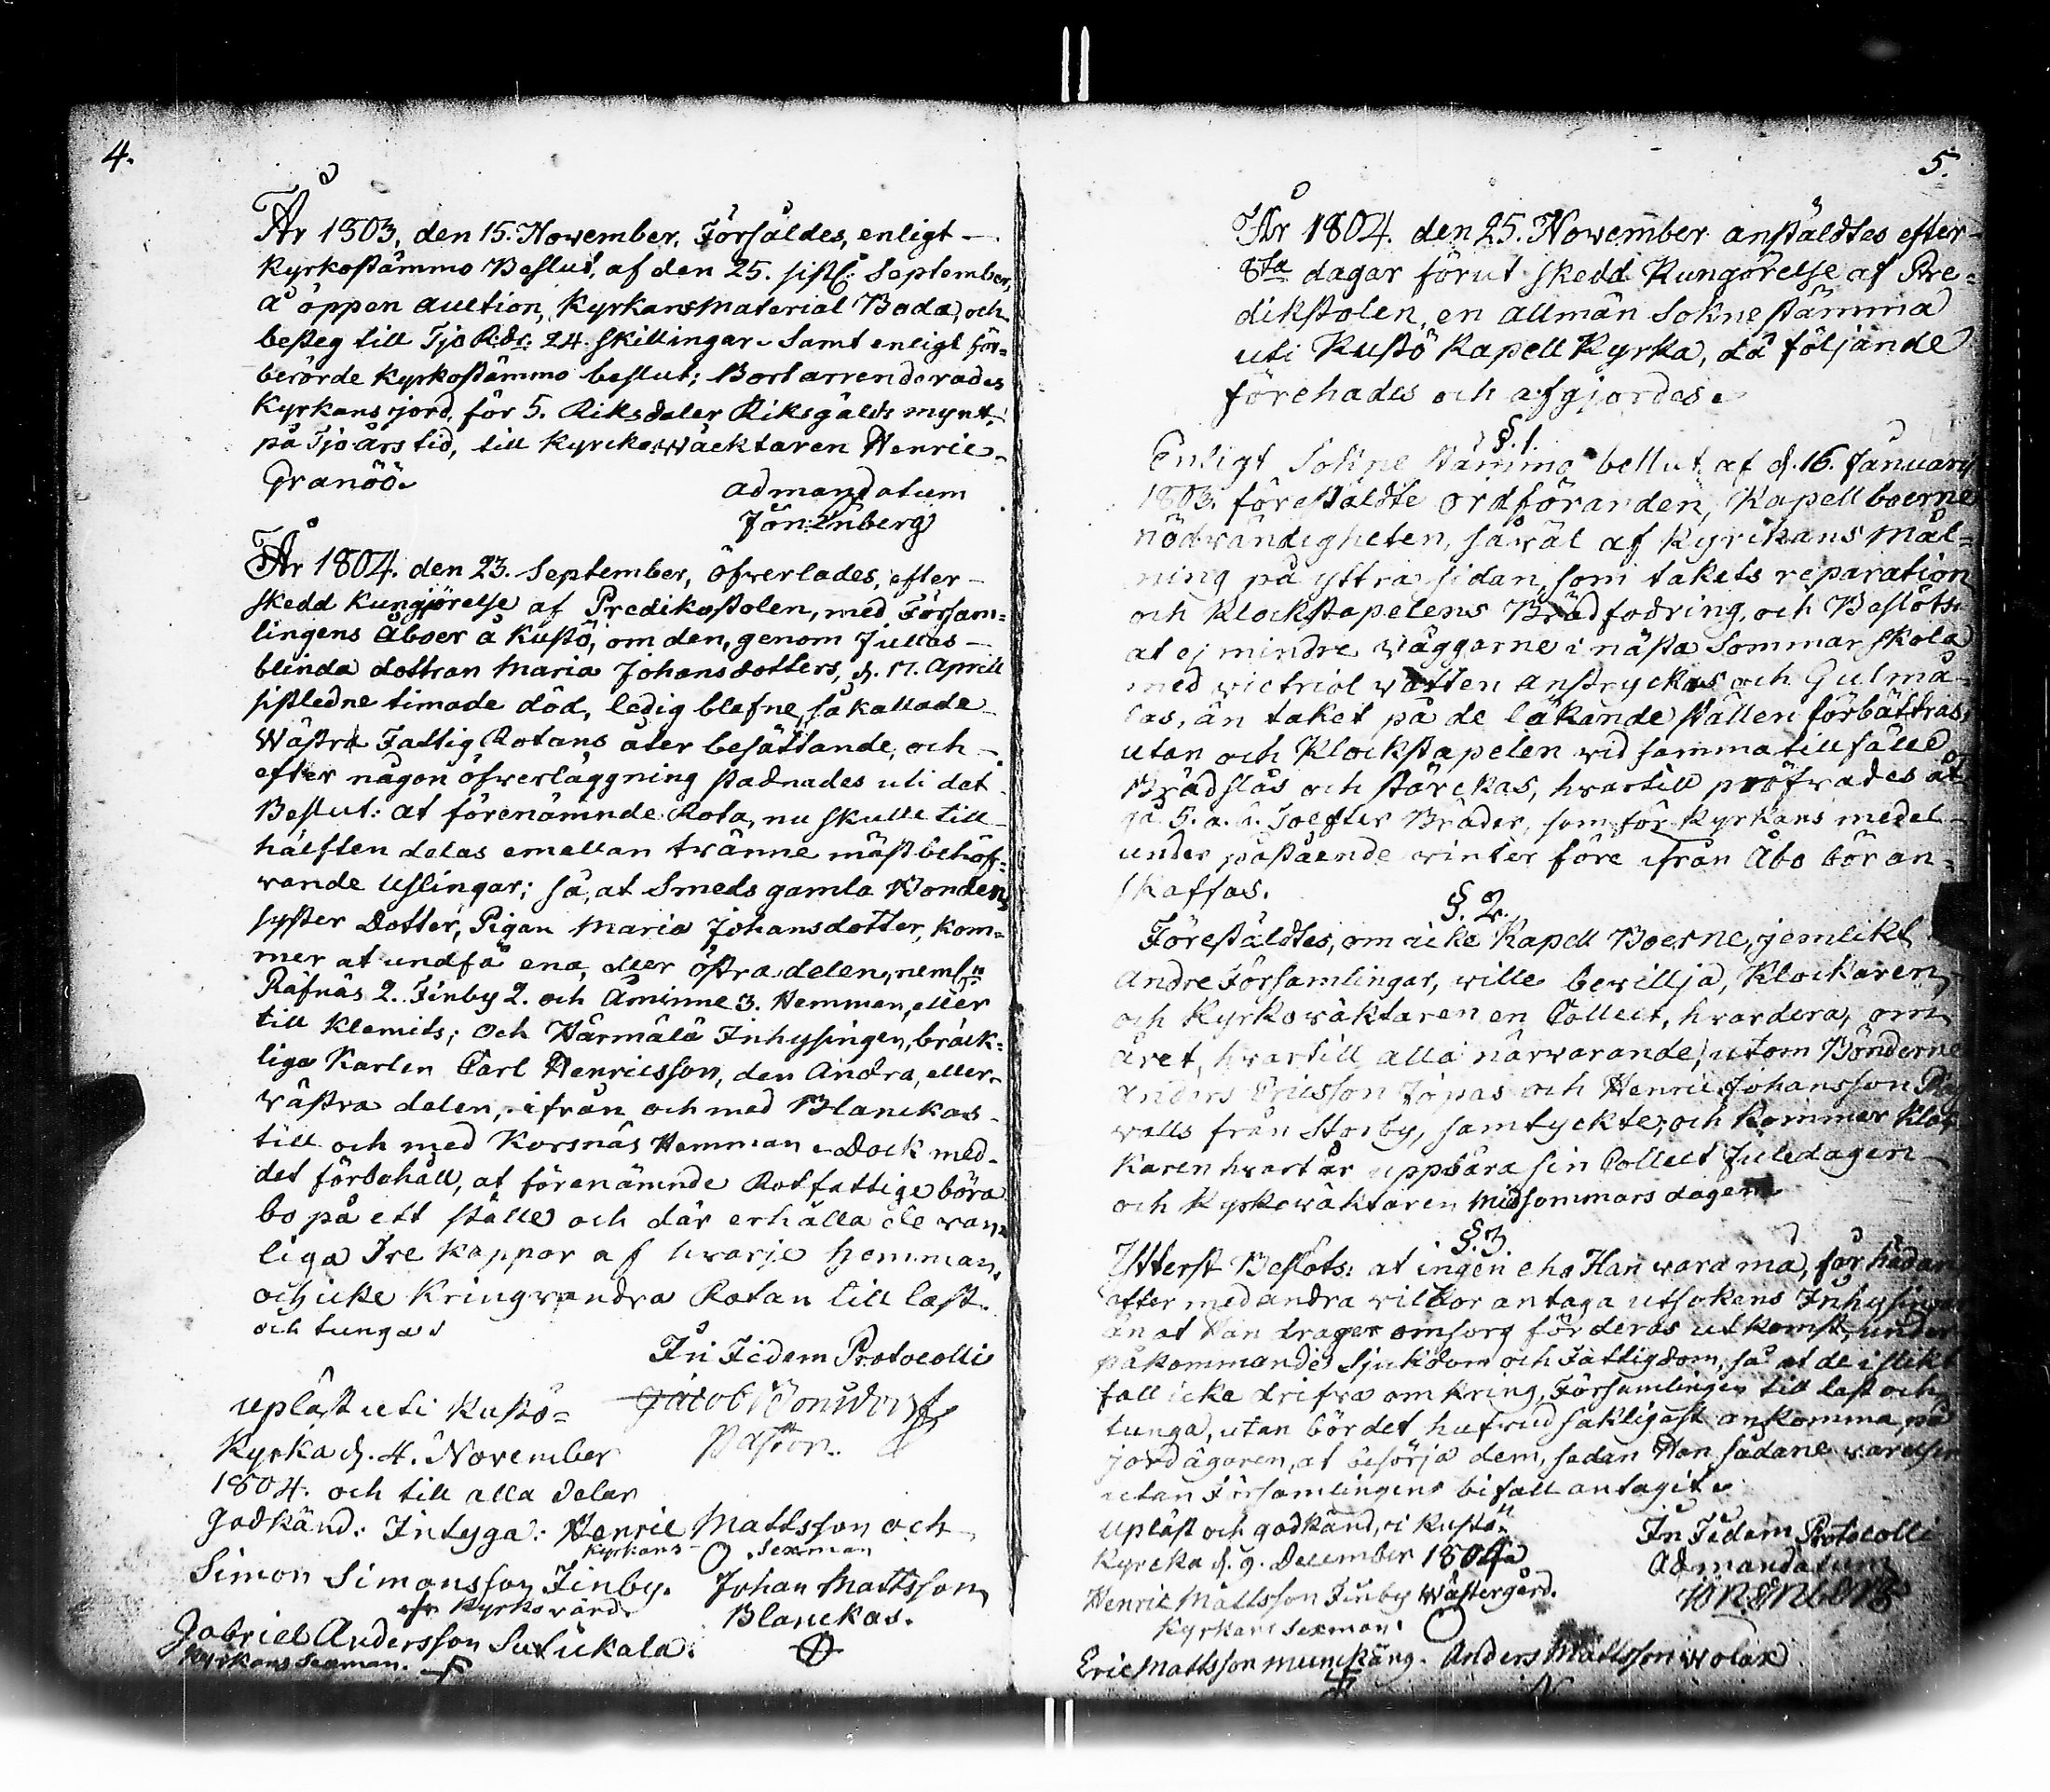 4.
År 1803, den 15. November, Försåldes, enligt
Kyrkostämmo Beslut, af den 25. sistl. September,
å öppen auction, Kyrkans Material Boda, och
besteg till Tjo Rdr. 24 skillingar. Samt enligt för=
berörde Kyrkostämmo beslut; Bortarrenderades
Kyrkans jord, för 5. Riksdaler Riksgälds mynt,
på Tjo års tid, till Kyrckowäcktaren Henric
Granöö.
ad mandatum
Jön:Enberg
År 1804. den 23. September, öfwerlades, efter
skedd Kungjörelse af Predikostolen, med Försam=
lingens Åboer å Kustö, om den, genom Jullas
blinda dottran Maria Johansdotters, d. 17. April
sistledne timade död, ledig blefne, så kallade
Wästra Fattig Rotans åter besättande, och
efter någon öfwerläggning stadnades uti det
Beslut: at förenämnde Rota, nu skulle till
hälften delas emellan twänne mäst behöf=
wande Uslingar; så, at Smeds gamla Bondens
syster Dotter, Pigan Maria Johansdotter, kom=
mer at undfå ena, eller östra delen, neml:n
Räfnäs 2. Finby 2. och Åminne 3. Hemman, eller
till Klemits; och Härmälä Inhysingen, bräck=
liga Karlen Carl Henricsson, den Andra, eller
Wästra delen, ifrån och med Blanckas
till och med Korsnäs Hemman. Dock med
det förbehåll, at förenämnde Rotfattige böra
bo på ett ställe och där erhålla de wan=
liga Tre kappar af hvarje hemman,
och icke Kringvandra Rotan till last
och tunga.
In Fidem Protocolli
Jacob Bonsdorff
Pastor.
upläst uti Kustö=
Kyrka d. 4. November
1804. och till alla delar
Godkänd. Intyga: Henric Mattsson och
Kyrkans Sexman
Simon Simonsson Finby. Johan Mattsson
Kyrkovärd Blanckas.
Gabriel Andersson Suikkala.
Kyrkans Sexman.
5.
År 1804. den 25. November anstäldtes efter
8ta dagar förut skedd Kungörelse af Pre=
dikstolen, en allmän Sokne stämma
uti Kustö Kapell Kyrka, då följande
förehades och afgjordes.
§. 1.
Enligt Sokne stämmo beslut af d. 16. January
1803. förestäldte ordföranden, Kapellboerne
nödwändigheten, såwäl af Kyrckans mål=
ning på yttra sidan, som takets reparation
och Klockstapelens Brädfodring, och Beslöts:
at ej mindre wäggarne i nästa Sommar skola
med victriol watten anstryckas och Gulmå
las, än taket på de läkande ställen förbättras,
utan och Klockstapelen wid samma tillfälle
Brädslås och stärckas, hwartill pröfwades åt
gå 5. a. 6. Tolfter Bräder, som för Kyrkans medel
under påstående winter före ifrån Åbo bör an=
skaffas.
§. 2.
Förestäldtes, om icke Kapell Boerne, jemlikt
andre Församlingar, wille bewillja, Klockaren
och Kyrkowäktaren en Collect, hwardera, om
året, hwartill alla närwarande, utom Bönderne
Anders Ericsson Jopas och Henric Johansson
walls från Storby, samtyckte; och kommer Kloc
karen hwart år uppbära sin Collect Juledagen
och Kyrkowäktaren Midsommars dagen.
§. 3.
Ytterst Beslöts: at ingen eho Han wara må, får hädan
efter med andra wilkor antaga utsokens Inhysingar
än at Han drager omsorg för deras utkomst, under
påkommande Sjukdom och Fattigdom, så at de i slikt
fall icke drifwa omkring, Församlingen till last och
tunga, utan bör det hufwudsakligast ankomma på
jordägaren, at besörja dem, sedan Han sådane warelser
utan Församlingens bifall antagit.
Upläst och godkänd, i Kustö
Kyrcka d. 9. December 1804
In Fidem Protocolli
Ad mandatum
Jön:Enberg
Henric Mattsson Finby Wästergård.
Kyrkans Sexman.
Eric Mattsson Munckäng. Anders Mattsson Wolax